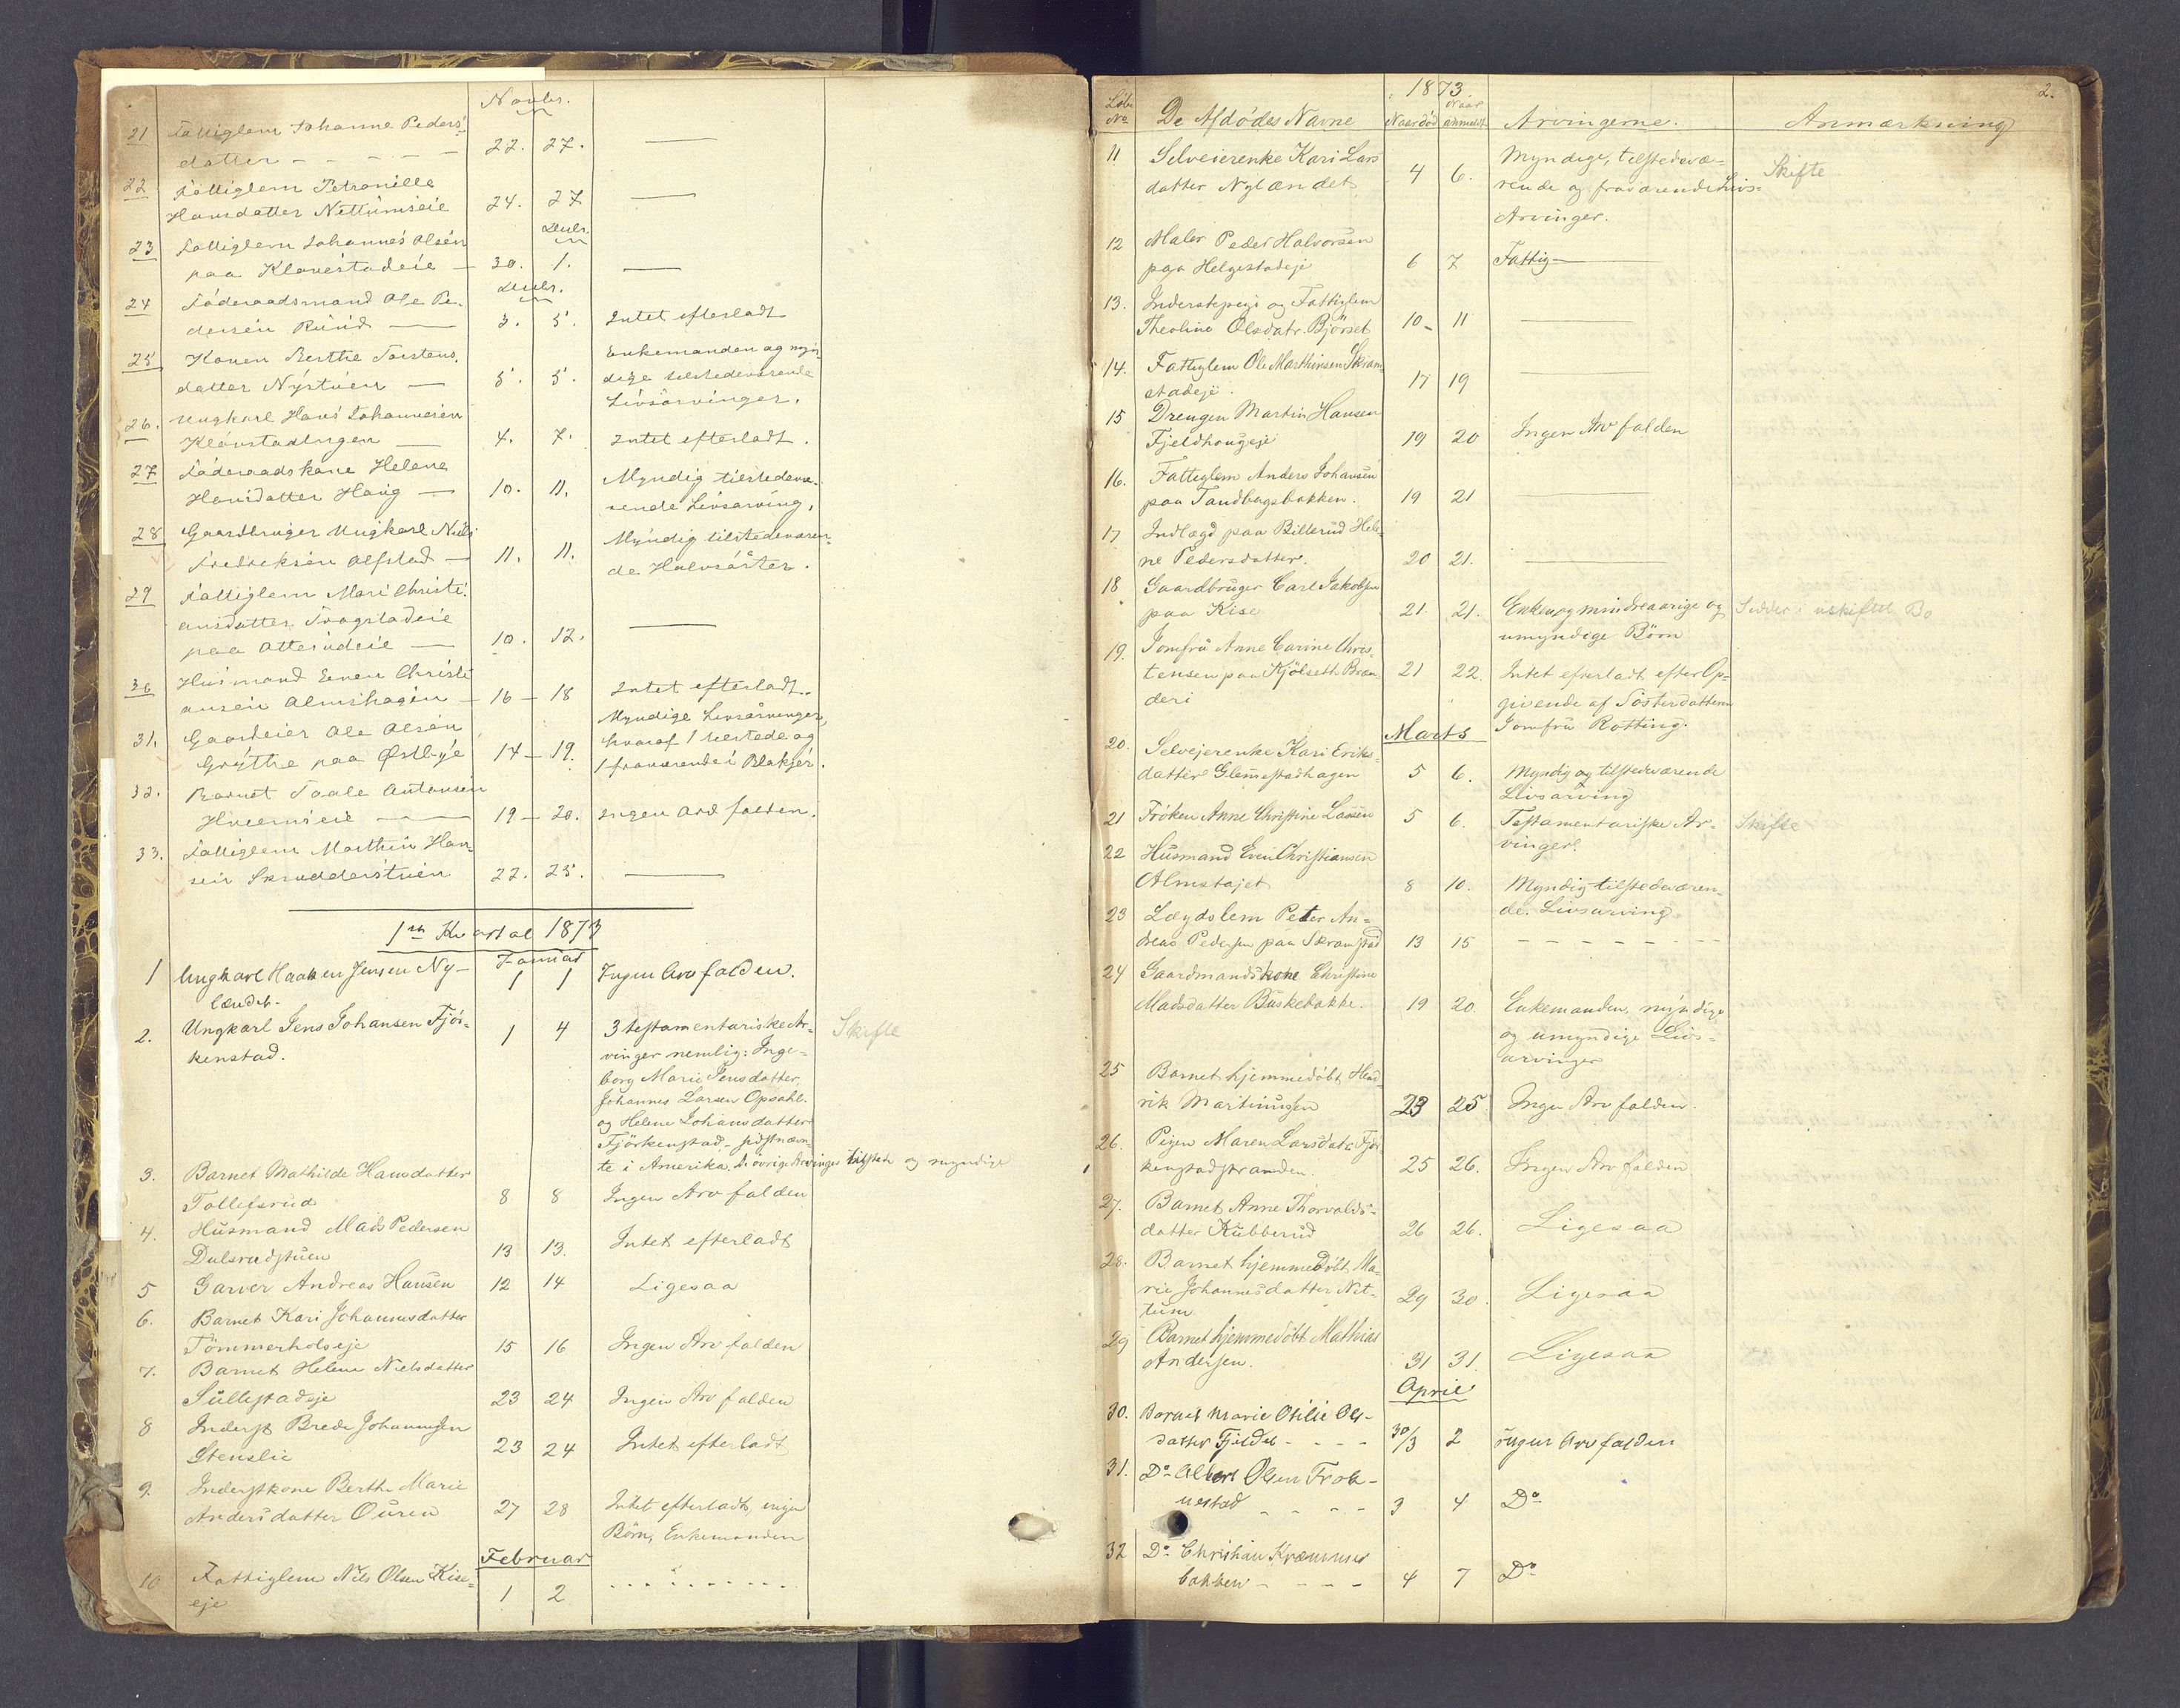 Novbr.
21 Fattiglem Johanne Peders-
datter - - - - - 22. 27. —
22 Fattiglem Petronille
Hansdatter Nettumseie 24. 27 —
Decbr.
23 Fattiglem Johannes Olsen
paa Klavestadeie — 30. 1. —
Decbr.
24 Föderaadsmand Ole Pe-
dersen Rund — 3. 5. Intet efterladt
25 Konen Berthe Torstens-
datter Nystuen — 5. 5. Enkemanden og myn-
dige tilstedeværende
Livsarvinger.
26. Ungkarl Hans Johannesen
Klavstadengen — 4. 7. Intet efterladt.
27 Föderaadskone Helene
Hansdatter Haug — 10. 11. Myndig tilstedevæ-
rende Livsarving.
28 Gaardbruger Ungkarl Niels
Fredriksen Alfstad — 11. 11. Myndig tilstedeværen-
de Halvsöster.
29 Fattiglem Mari Christi-
ansdatter Frogstadeie
paa Atterudeie — 10. 12. —
30 Husmand Even Christi
ansen Almshagen — 16 — 18 Intet efterladt.
31. Gaardeier Ole Olsen
Grýthe paa Østbye 14 — 19. Myndige Livsarvinger,
hvoraf 1 tilstede og
1 fraværende i Blakjer.
32. Barnet Paale Antonsen
Hveemseie — 19 — 20. Ingen Arv falden.
33. Fattiglem Marthin Han-
sen Skrudderstuen 22. 23. —
1ste Kvartal 1873
Januar
1 Ungkarl Haaken Jensen Ny-
lændet. 1 1 Ingen Arv falden.
2. Ungkarl Jens Johansen Fjör-
kenstad. 1 4 3 testamentariske Ar- Skifte
vinger nemlig: Inge-
borg Marie Jensdatter,
Johannes Larsen Opsahl.
og Helene Johansdatter
Fjörkenstad - sidstnævn-
te i Amerika. De övrige Arvinger tilstede og myndige
3. Barnet Mathilde Hansdatter
Tollefsrud 8 8 Ingen Arv falden
4. Husmand Mads Pedersen
Dulsrudstuen 13 13. Intet efterladt
5 Garver Andreas Hansen 12 14 Ligesaa
6. Barnet Kari Johannesdatter
Tömmerholseje 15 16 Ingen Arv falden
7. Barnet Helene Nielsdatter
Sullestadeje 23 24 Ingen Arv falden
8 Inderst Brede Johannesen
Stenslie 23 24 Intet efterladt
9. Inderstkone Berthe Marie
Andersdatter Ouren 27 28 Intet efterladt, ingen
Börn, Enkemanden
Februar
10 Fattiglem Nils Olsen Kise-
eje 1 2 - - - - - - -
2.
1873.
Löbe No. De Afdödes Navne Naar död Naar anmeldt Arvingerne. Anmærkning
11 Selveierenke Kari Lars
datter Nylændet 4 6. Myndige, tilstedevæ- Skifte
rende og fraværende Livs-
Arvinger.
12 Maler Peder Halvorsen
paa Helgestadeje 6 7 Fattig —
13. Inderstpige og Fattiglem
Theoline Olsdatr. Björset 10 - 11 —
14. Fattiglem Ole Marthinsen Skram-
stadeje. 17 19 —
15 Drengen Martin Hansen
Fjeldhougeje 19 20 Ingen Arv falden
16. Fattiglem Anders Johansen
paa Sandbagsbakken. 19 21 —
17 Indlagd paa Billerud Hele-
ne Pedersdatter. 20 21. —
18 Gaardbruger Carl Jakobsen
paa Kise 21. 21. Enken og mindreaarige og Sidder i uskiftet Bo
umyndige Börn
19. Jomfru Anne Carine Chris-
tensen paa Kjölseth Bræn- 21 22. Intet efterladt efter Op-
deri givende af Sösterdatteren
Jomfru Rotting.
Marts
20. Selvejerenke Kari Eriks-
datter Glemmestadhagen 5 6. Myndig og tilstedeværende
Livsarving
21 Fröken Anne Christine Lassen 5 6. Testamentariske Ar- Skifte
vinger.
22 Husmand Even Christiansen
Almstajet 8 10. Myndig tilstedeværen-
de Livsarving
23 Lægdslem Peter An-
dreas Pedersen paa Skramstad 13 15 - - - - - - -
24 Gaardmandskone Christine
Madsdatter Buskebakke. 19 20 Enkemanden, myndige
og umyndige Livs-
arvinger
25 Barnet hjemmedöbt Hend-
rik Martinusen 23 25 Ingen Arv falden.
26. Pigen Maren Larsdatr. Fjör-
kenstadstranden. 25 26. Ingen Arv falden
27. Barnet Anne Thorvalds-
datter Kubberud 26 26. Ligesaa
28. Barnet hjemmedöbt Ma-
rie Johannesdatter Net- 29 30. Ligesaa
tum
29 Barnet hjemmedöbt Mathias
Andersen. 31 31. Ligesaa
April
30. Barnet Marie Otilie Ols-
datter Fjeldet - - - - 30/3 2 Ingen Arv falden
31. Do Albert Olsen Frok-
nestad - - - - 3 4 Do
32 Do Christian Kræmmer
bakken - - - - 4 7 Do